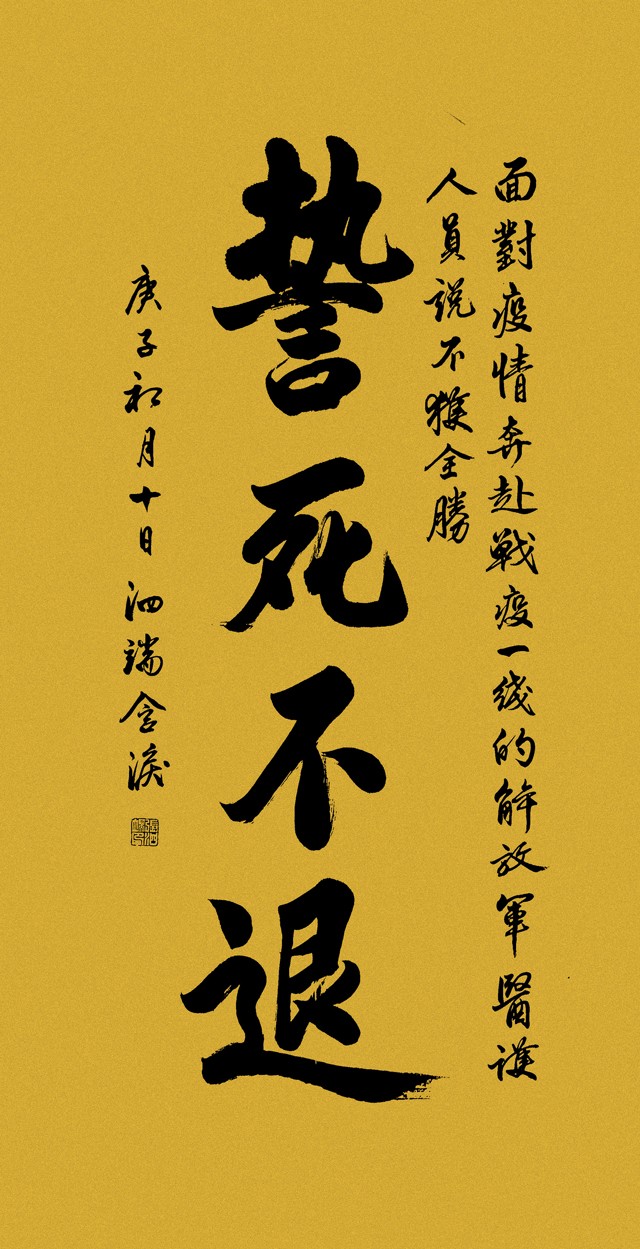 面對疫情奔赴戰疫一綫的解放軍醫護
人員説不獲全勝
誓死不退
庚子初月十日泗端含淚